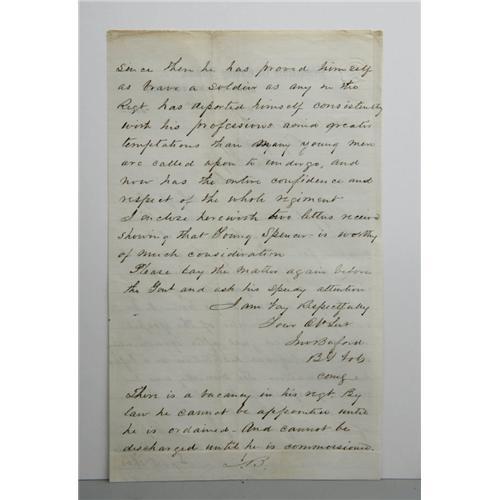 since then he has proved himself
as brave a soldier as any in the
Regt. has deported himself consistently
with his professions amid greater
temptations than many young men
are called upon to undergo, and
now has the entire confidence and
respect of the whole regiment
I enclose herewith two letters
showing that Young Spencer is worthy
of much consideration
Please lay the matter again before
the Govt and ask his speedy attention
I am Respectfully
Your Obt Svt
Jno Buford
B G
comg
There is a vacancy in his regt. By
law he cannot be appointed until
he is ordained - And cannot be
discharged until he is commissioned.
J.B.